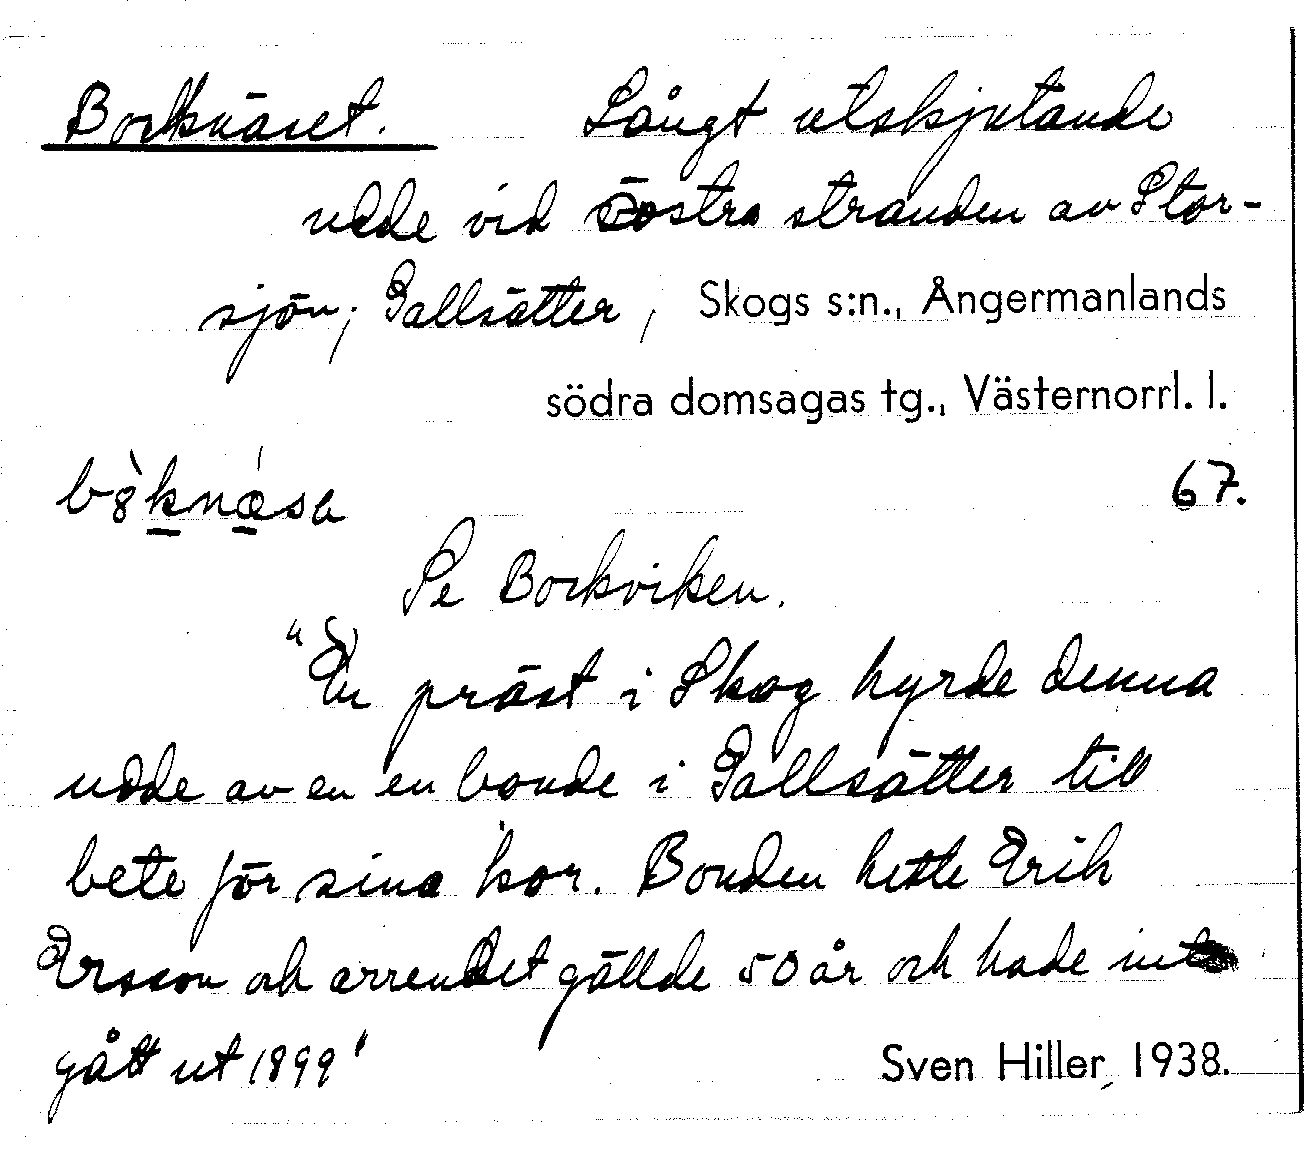 Borknäset. Långt utskjutande
udde vid östra stranden av Stor-
sjön; Gallsätter, Skogs s:n., Ångermanlands
södra domsagas tg., Västernorrl. l.
67.
Se Borkviken.
"En präst i Skog hyrde denna
udde av en en bonde i Gallsätter till
bete för sina kor. Bonden hette Erik
Ersson och arrendet gällde 50 år och hade
gått ut 1899"
Sven Hiller, 1938.